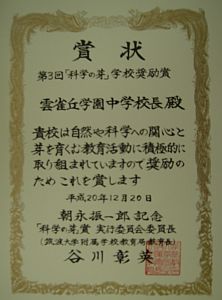 賞状
第3回「科学の芽」学校奨励賞
雲雀丘学園中学校長 殿
貴校は自然や科学への関心と
芽を育む教育活動に積極的に
取り組まれていますので奨励の
ためこれを賞します
平成20年12月20日
朝永振一郎記念
「科学の芽」賞 実行委員会委員長
(筑波大学附属学校教育局教育長)
谷川彰英